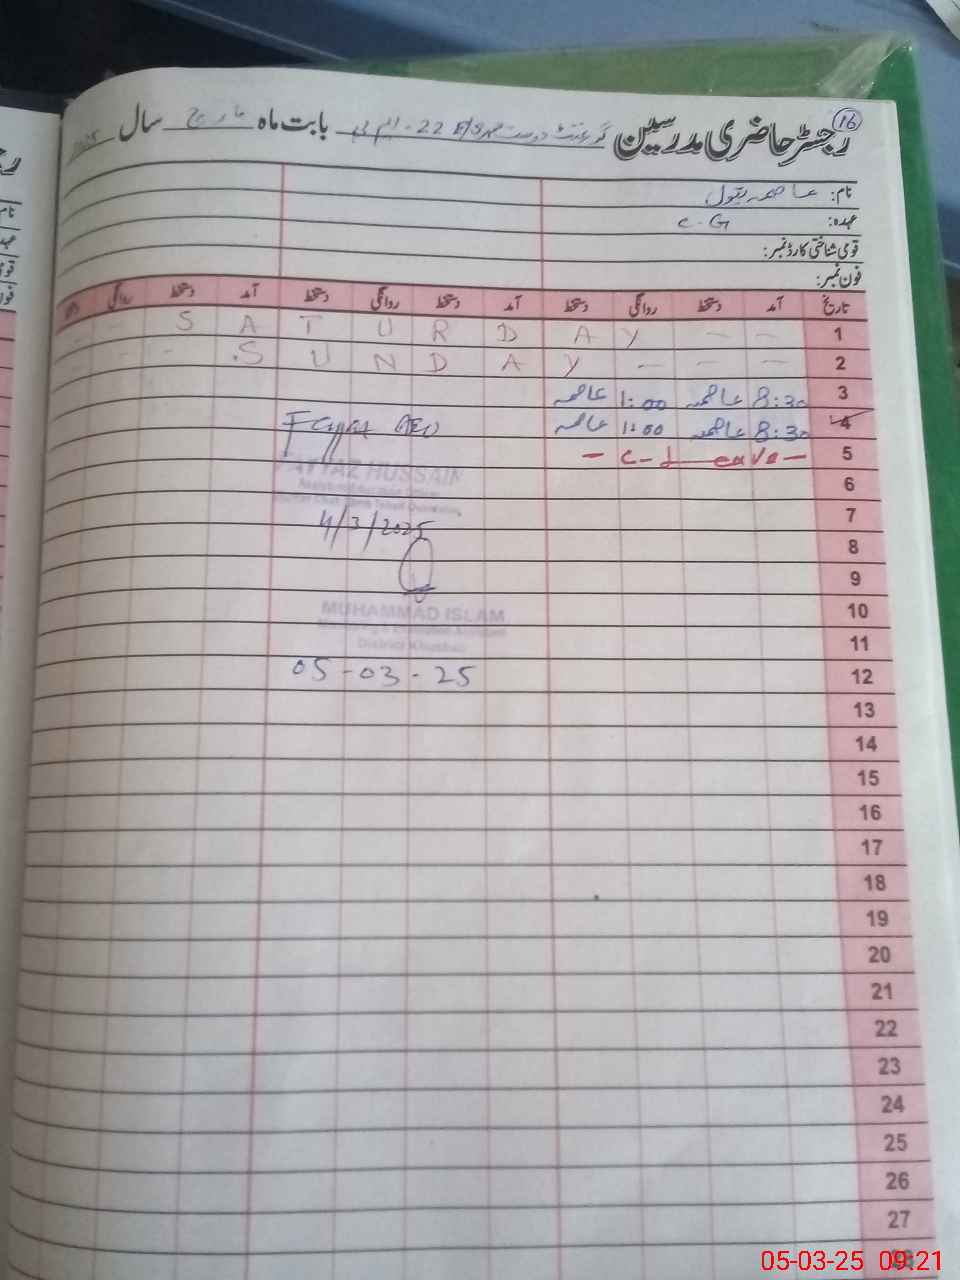 16
رجسٹر حاضری مدرسین گورنمنٹ دوست محمد E/S 22 - ایم بی بابت ماہ مارچ سال 2025
نام: عاصمہ بتول
عہدہ: C.G
قومی شناختی کارڈ نمبر:
فون نمبر:
تاریخ آمد دستخط روانگی دستخط آمد دستخط روانگی دستخط آمد دستخط روانگی دستخط
1 — — S A T U R D A Y - -
2 — — — S U N D A Y - -
3 8:30 عاصمہ 1:00 عاصمہ
4 8:30 عاصمہ 1:00 عاصمہ
5 — C-Leave —
AEO
FAYYAZ HUSSAIN
4/3/2025
MUHAMMAD ISLAM
District Khushab
05-03-25
6
7
8
9
10
11
12
13
14
15
16
17
18
19
20
21
22
23
24
25
26
27
28
05-03-25 09:21